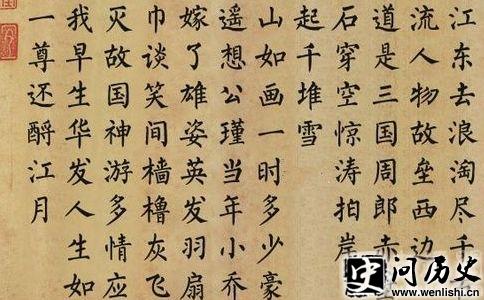 江东去浪淘尽千
流人物故垒西边
道是三国周郎赤
石穿空惊涛拍岸
起千堆雪
山如画一时多少豪
遥想公瑾当年小乔
嫁了雄姿英发羽扇
巾谈笑间樯橹灰飞
灭故国神游多情应
我早生华发人生如
一尊还酹江月
史 问历史
www.wenlishi.cn